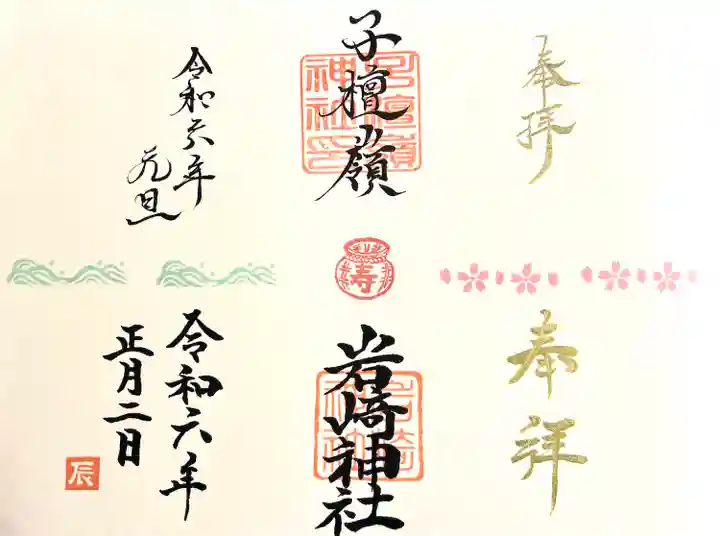 奉拝
子檀嶺
子檀嶺
神社印
令和六年
元旦
寿
奉拝
岩崎神社
岩崎
神社
令和六年
正月二日
辰